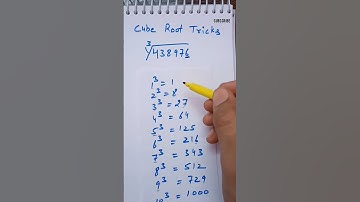 SUBSCRIBE
Cube Root Tricks
∛438976
1³ = 1
2³ = 8
3³ = 27
4³ = 64
5³ = 125
6³ = 216
7³ = 343
8³ = 512
9³ = 729
10³ = 1000